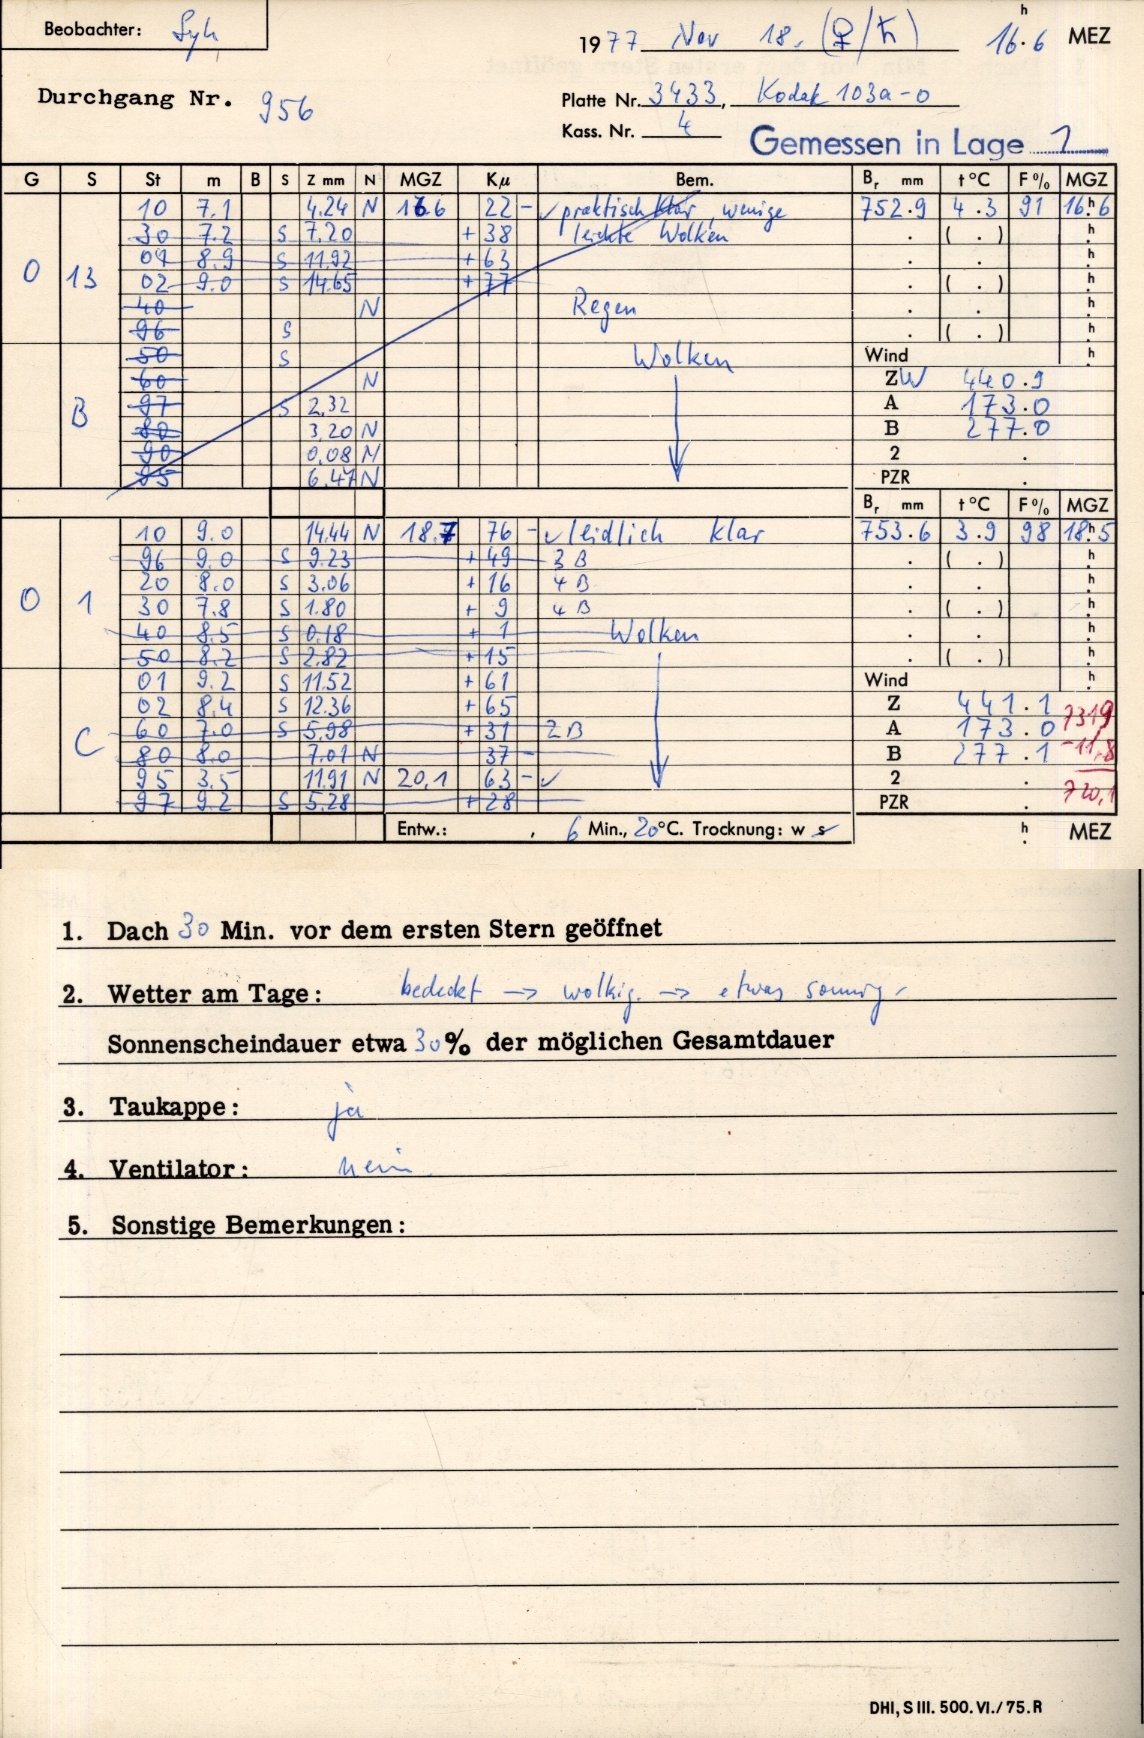 Beobachter: Syh
1977 Nov 18. (♀/ħ) 16.6 h MEZ
Durchgang Nr. 956
Platte Nr. 3433, Kodak 103a-0
Kass. Nr. 4
Gemessen in Lage 1
G S St m B S Z mm N MGZ Kμ Bem. Br mm t °C F % MGZ
10 7.1 4.24 N 16.6 22 - ✓ praktisch klar, wenige 752.9 4.3 91 16.h6
30 7.2 S 7.20 + 38 leichte Wolken . ( . ) h
09 8.9 S 11.92 + 63 . . h
0 13 02 9.0 S 14.65 + 77 . ( . ) h
40 N Regen . . h
96 S . ( . ) h
50 S Wolken Wind h
60 N ZW 440.9
B 97 S 2,32 A 173.0
80 3,20 N B 277.0
90 0,08 N 2 .
95 6.47 N PZR .
Br mm t °C F % MGZ
10 9.0 14.44 N 18.7 76 - ✓ leidlich klar 753.6 3.9 98 18.h5
96 9.0 S 9.23 + 49 3 B . ( . ) h
20 8.0 S 3.06 + 16 4 B . . h
0 1 30 7.8 S 1.80 + 9 4 B . ( . ) h
40 8.5 S 0.18 + 1 Wolken . . h
50 8.2 S 2.82 + 15 . ( . ) h
01 9.2 S 11.52 + 61 Wind h
02 8.4 S 12.36 + 65 Z 441.1 7319
C 60 7.0 S 5.98 + 31 2 B A 173.0
80 8.0 7.01 N 37 - B 277.1 -11,8
95 3.5 11.91 N 20,1 63 - ✓ 2 .
97 9.2 S 5.28 + 28 PZR . 720,1
Entw.: , 6 Min., 20°C. Trocknung: w s h . MEZ
1. Dach 30 Min. vor dem ersten Stern geöffnet
2. Wetter am Tage: bedeckt → wolkig. → etwas sonnig.
Sonnenscheindauer etwa 30% der möglichen Gesamtdauer
3. Taukappe: ja
4. Ventilator: nein
5. Sonstige Bemerkungen:
DHI, S III. 500. VI./75. R